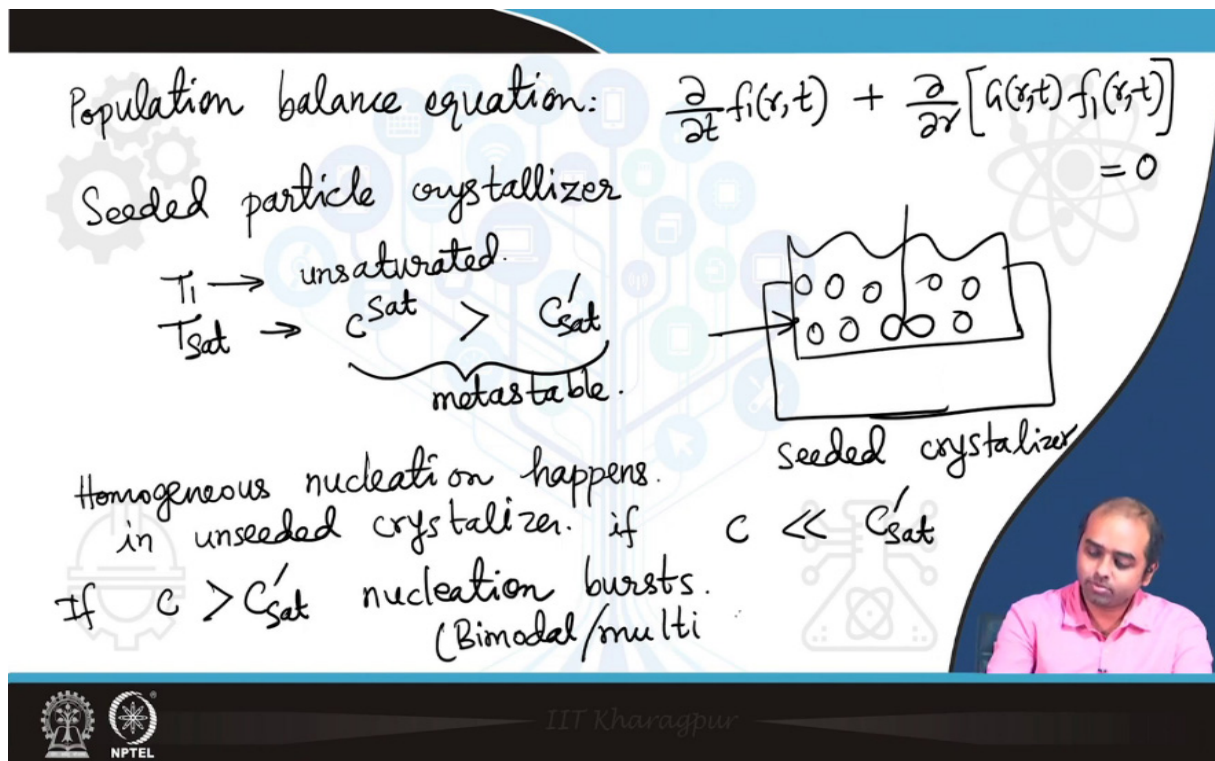 Population balance equation: ∂/∂t f₁(r,t) + ∂/∂r [G(r,t) f₁(r,t)]
= 0
Seeded particle crystallizer
T₁ → unsaturated.
T_sat → C^sat > C'_sat
metastable.
seeded crystalizer
Homogeneous nucleation happens.
in unseeded crystalizer. if C << C'_sat
If C > C'_sat nucleation bursts.
(Bimodal/multi
IIT Kharagpur
NPTEL